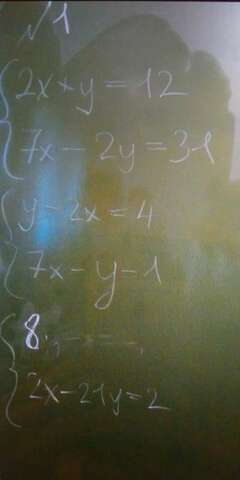 №1
2x+y=12
7x-2y=31
y-2x=4
7x-y=1
8
2x-21y=2